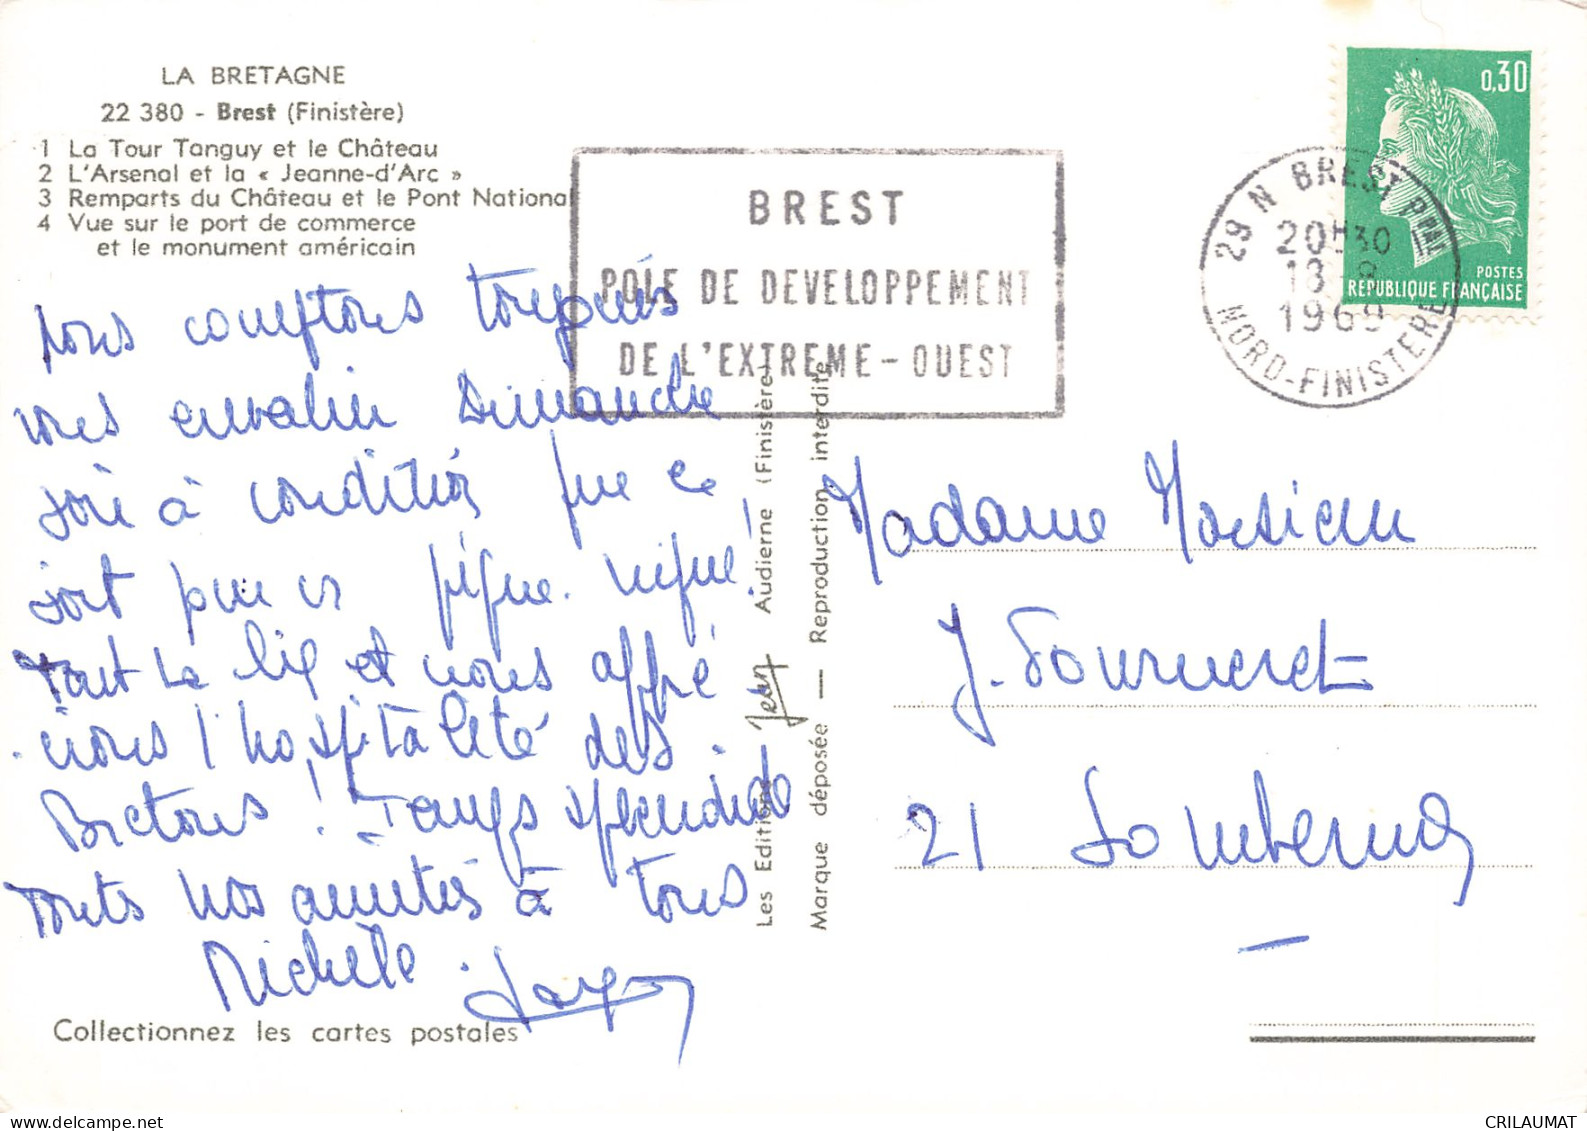 LA BRETAGNE
22 380 - Brest (Finistère)
1 La Tour Tanguy et le Château
2 L'Arsenal et la « Jeanne-d'Arc »
3 Remparts du Château et le Pont National
4 Vue sur le port de commerce
et le monument américain
BREST
POLE DE DEVELOPPEMENT
DE L'EXTREME-OUEST
0,30
POSTES
REPUBLIQUE FRANÇAISE
29 N BREST PPAL
20H30
18-8
1969
NORD-FINISTERE
nous comptons toujours
vous envahir Dimanche
soir à condition que ce
soit pour un pique-nique!
Tout va bien et nous
nous l'hospitalité des
Bretons! Temps splendide
Toutes nos amitiés à tous
Michèle
Les Editions Jean Audierne (Finistère)
Marque déposée — Reproduction interdite
Madame Monsieur
J. Fourneret
21 Sombernon
Collectionnez les cartes postales
CRILAUMAT